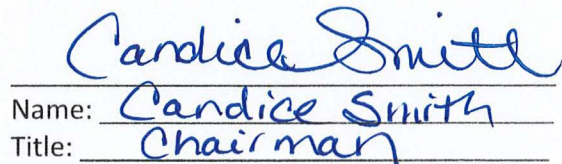 Candice Smith
Name: Candice Smith
Title: Chairman